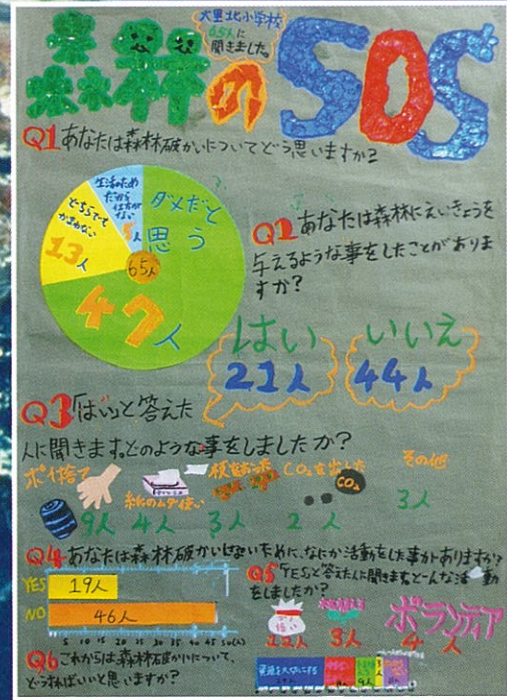 森林のSOS
大里北小学校
65人に
聞きました。
Q1あなたは森林破かいについてどう思いますか?
ダメだと
思う
47人
どちらでも
かまわない
13人
生活のため
だから仕方が
ない
5人
65人
Q2あなたは森林にえいきょうを
与えるような事をしたことがありま
すか?
はい
21人
いいえ
44人
Q3「はい」と答えた
人に聞きます。どのような事をしましたか?
ポイ捨て
9人
紙のムダ使い
4人
3人
CO₂を出した
CO₂
2人
その他
3人
Q4あなたは森林破かいを防ぐために、なにか活動をした事がありますか?
YES 19人
NO 46人
5 10 15 20 25 30 35 40 45 50(人)
Q5「YES」と答えた人に聞きます。どんな活動
をしましたか?
12人
3人
ボランティア
4人
Q6これからは森林破かいについて、
どうすればいいと思いますか?
資源を大切にする